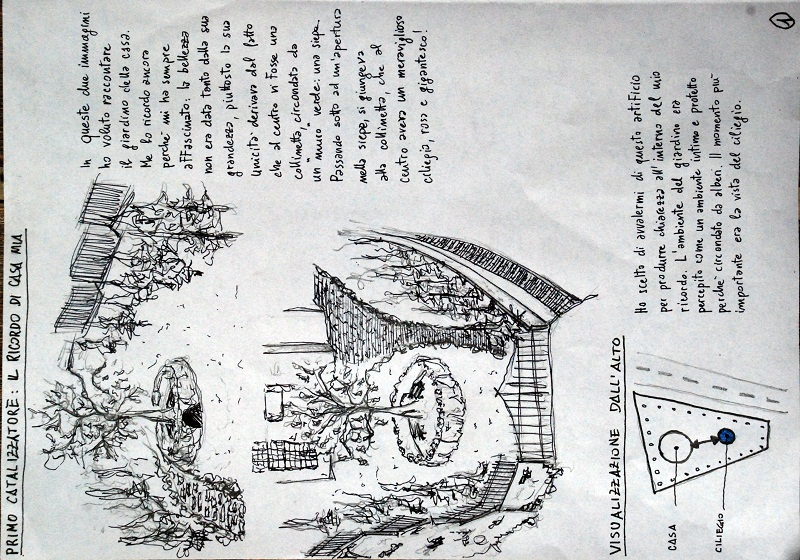 PRIMO CATALIZZATORE: IL RICORDO DI CASA MIA
In queste due immagini
ho voluto raccontare
il giardino della casa.
Me lo ricordo ancora
perché mi ha sempre
affascinato: la bellezza
non era data tanto dalla sua
grandezza, piuttosto la sua
unicità derivava dal fatto
che al centro vi fosse una
collinetta, circondata da
un "muro" verde: una siepe.
Passando sotto ad un'apertura
nella siepe, si giungeva
alla collinetta, che al
centro aveva un meraviglioso
ciliegio, rosso e gigantesco!
VISUALIZZAZIONE DALL'ALTO
CASA
CILIEGIO
Ho scelto di avvalermi di questo artificio
per produrre chiarezza all'interno del mio
ricordo. L'ambiente del giardino era
percepito come un ambiente intimo e protetto
perché circondato da alberi. Il momento più
importante era la vista del ciliegio.
1